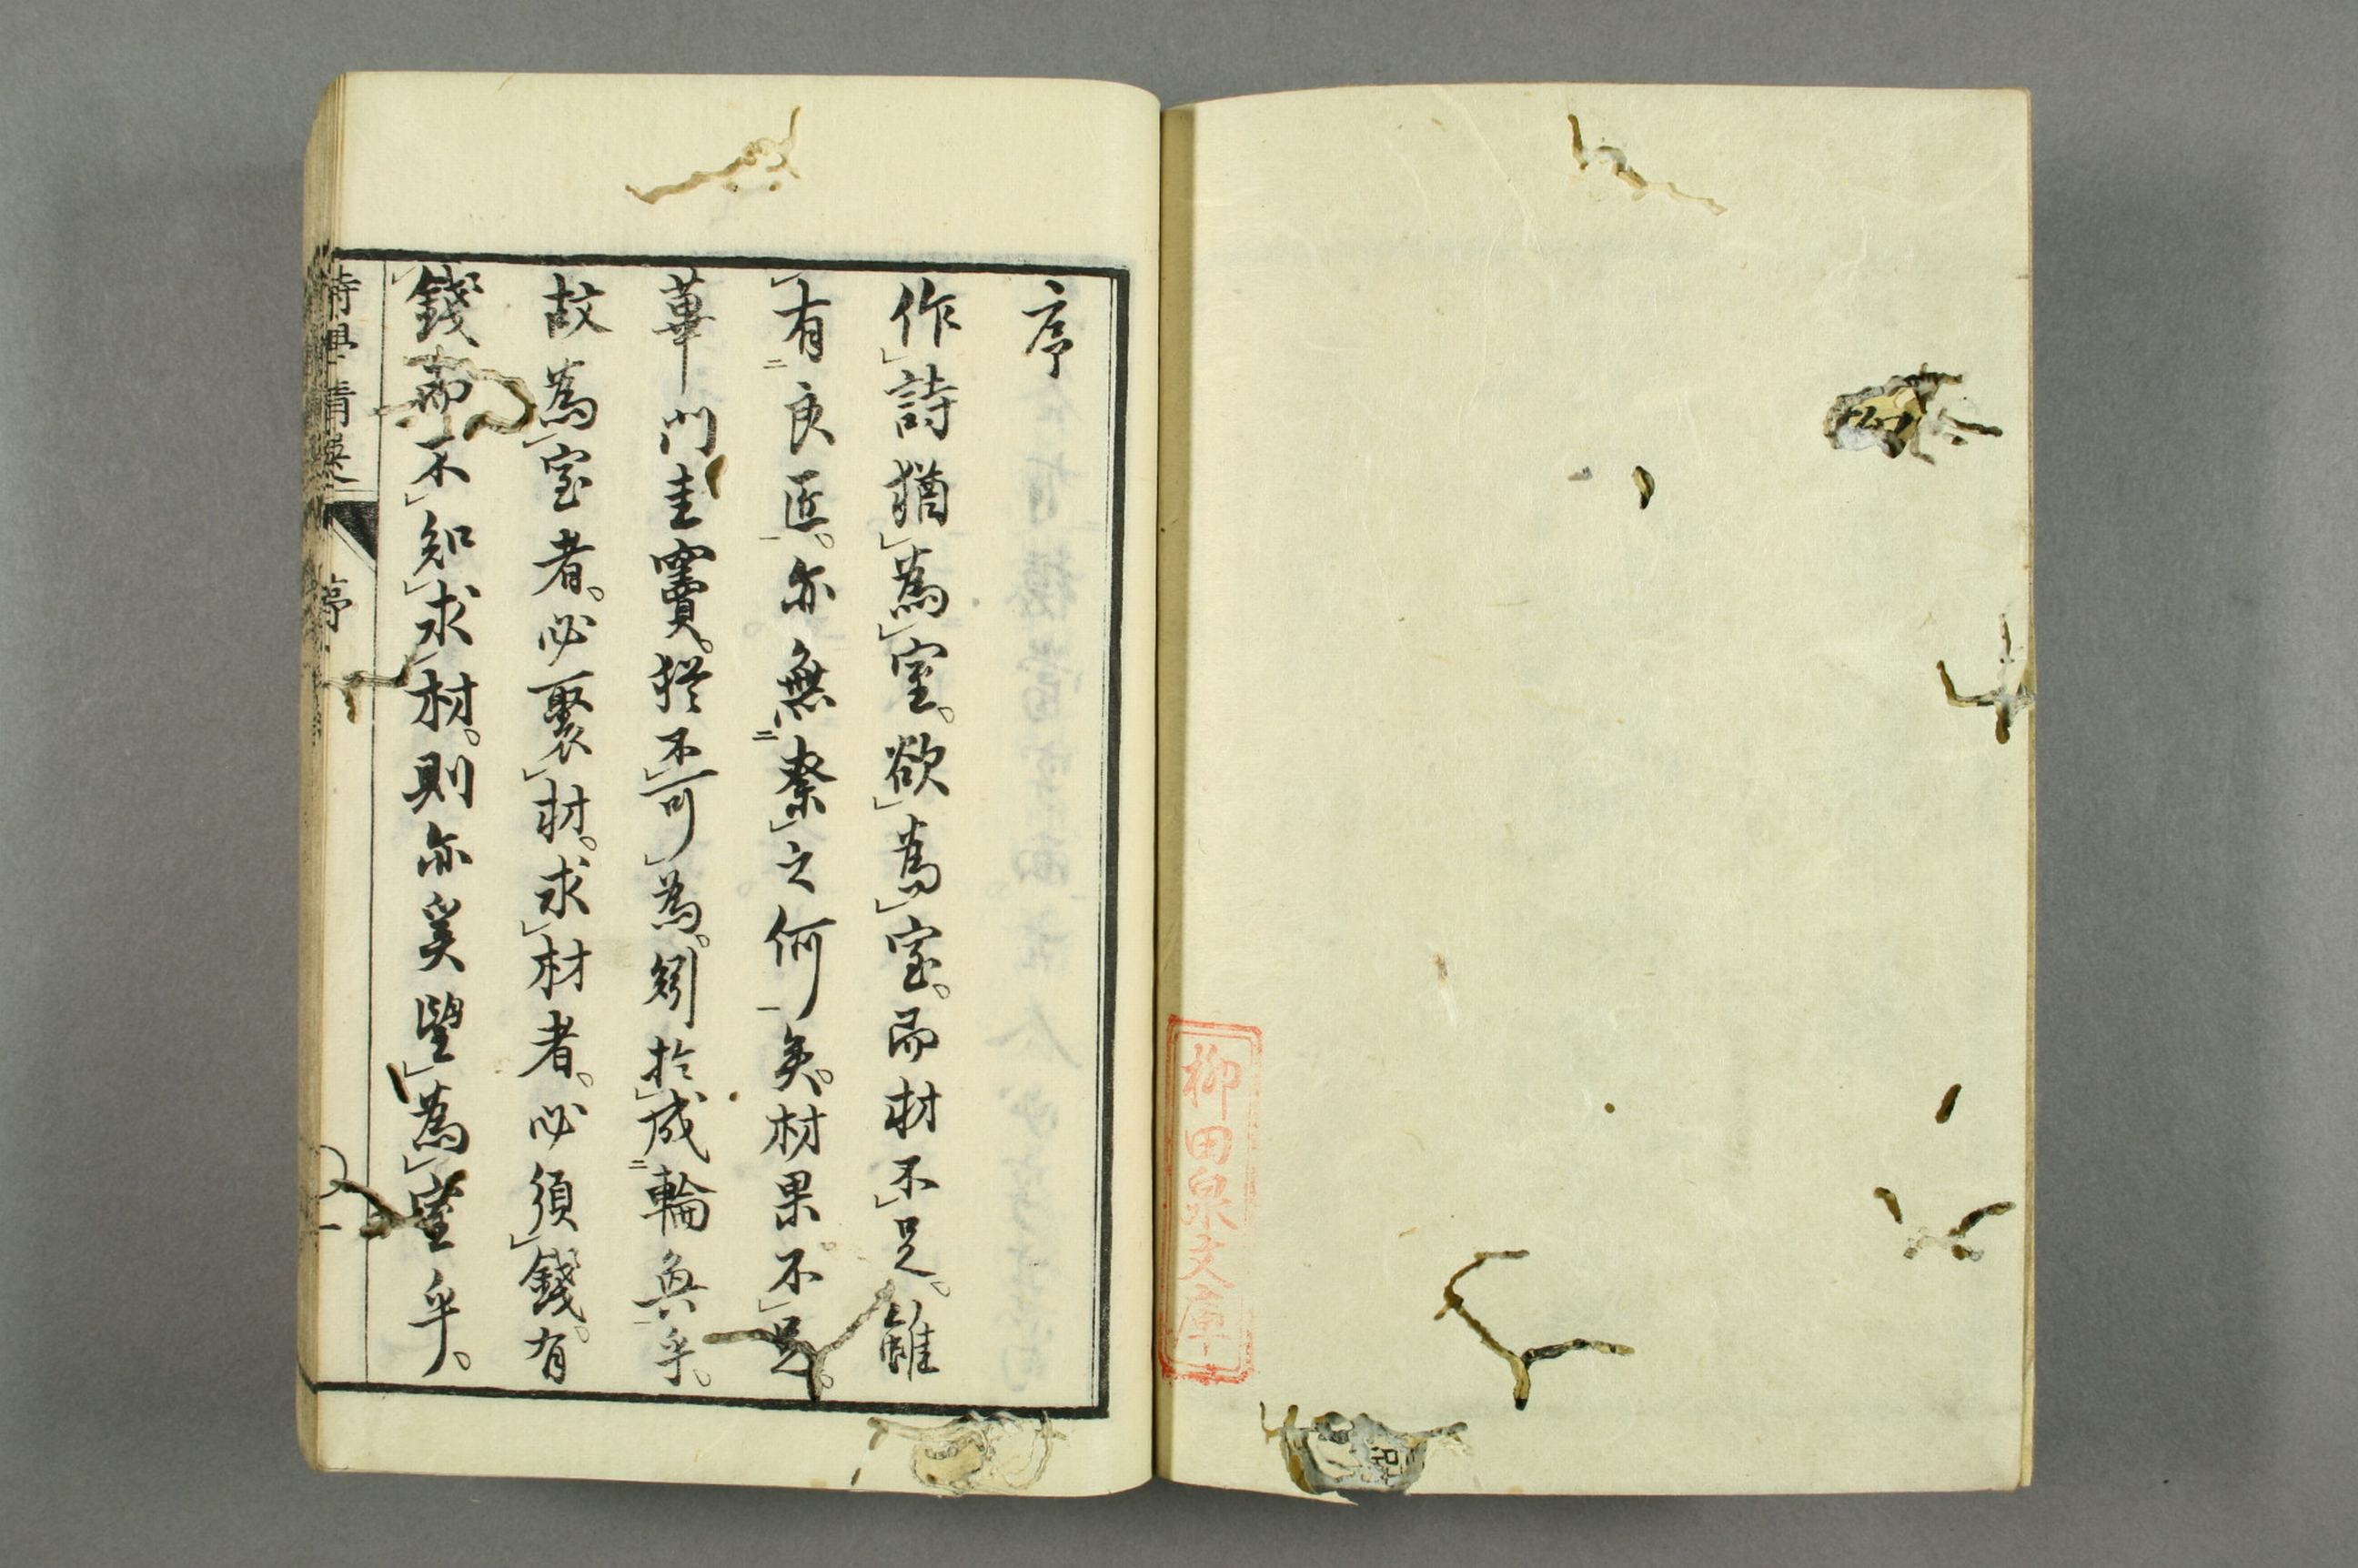 柳田泉文庫
序
作詩猶為室。欲為室。而材不足。雖
有良匠。亦無奈之何矣。材果不足。
蓽門圭竇。猶不可為。矧於成輪奐乎。
故為室者。必聚材。求材者。必須錢。有
錢而不知求材。則亦奚望為室乎。
詩學精選 序